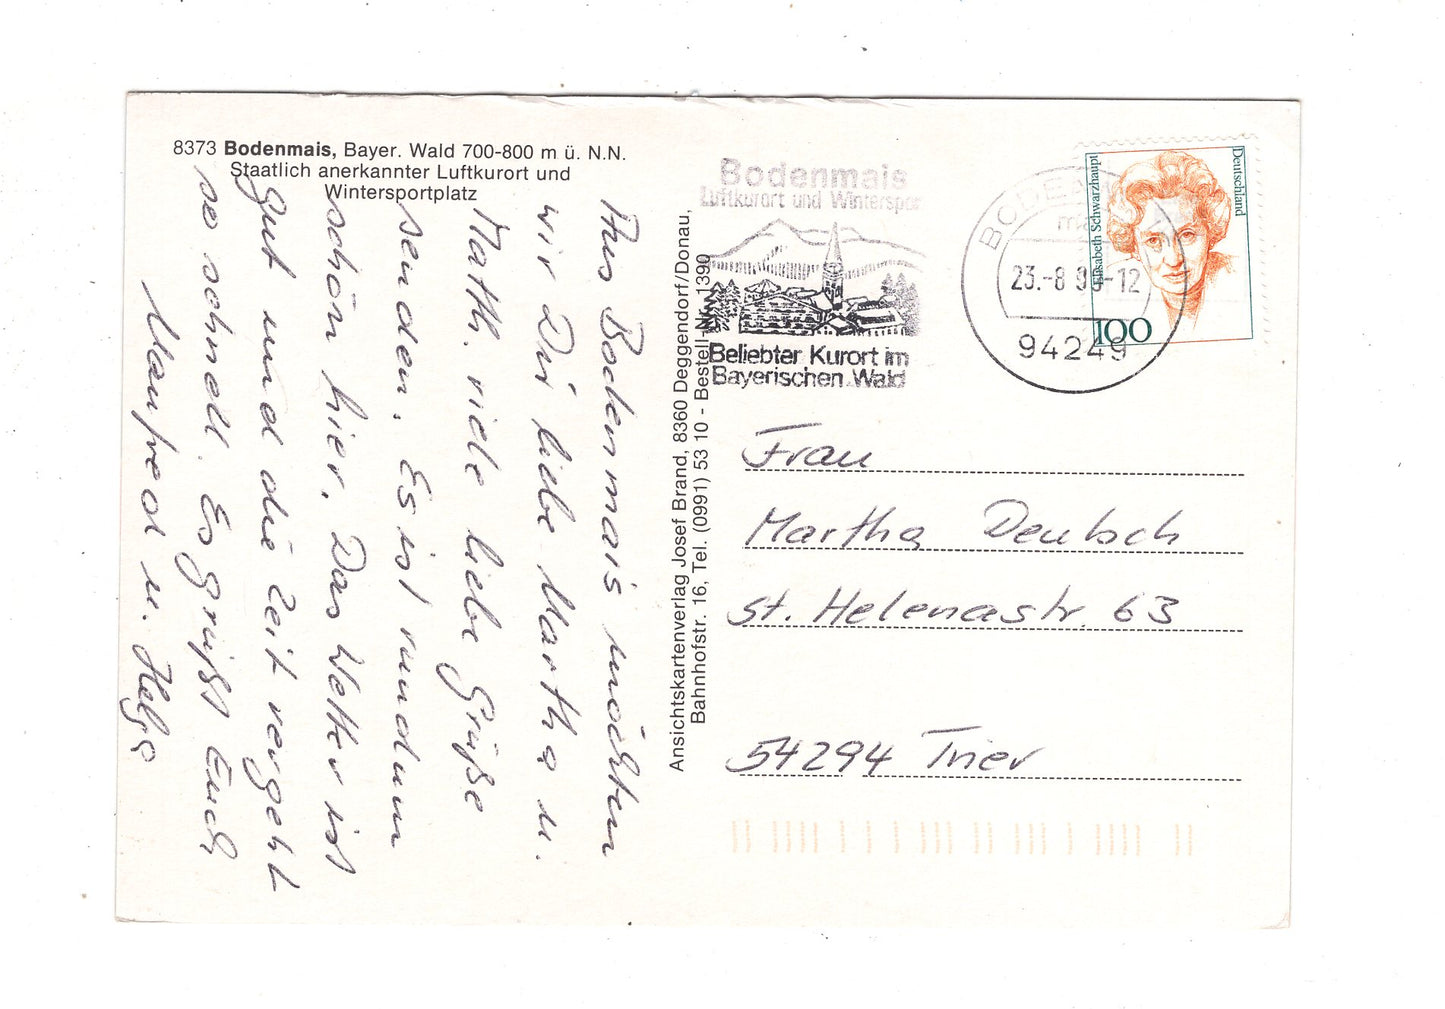 8373 Bodenmais, Bayer. Wald 700-800 m ü. N.N.
Staatlich anerkannter Luftkurort und
Wintersportplatz
Aus Bodenmais möchten
wir Dir liebe Martha u.
Matth. viele liebe Grüße
senden. Es ist rundum
schön hier. Das Wetter ist
gut und die Zeit vergeht
so schnell. Es grüßt Euch
Manfred u. Helga
Ansichtskartenverlag Josef Brand, 8360 Deggendorf/Donau,
Bahnhofstr. 16, Tel. (0991) 53 10 - Bestell-Nr. 1390
Bodenmais
Luftkurort und Winterspor
Beliebter Kurort im
Bayerischen Wald
23.-8 -12
94249
Elisabeth Schwarzhaupt
Deutschland
100
Frau
Martha Deutsch
St. Helenastr. 63
54294 Trier